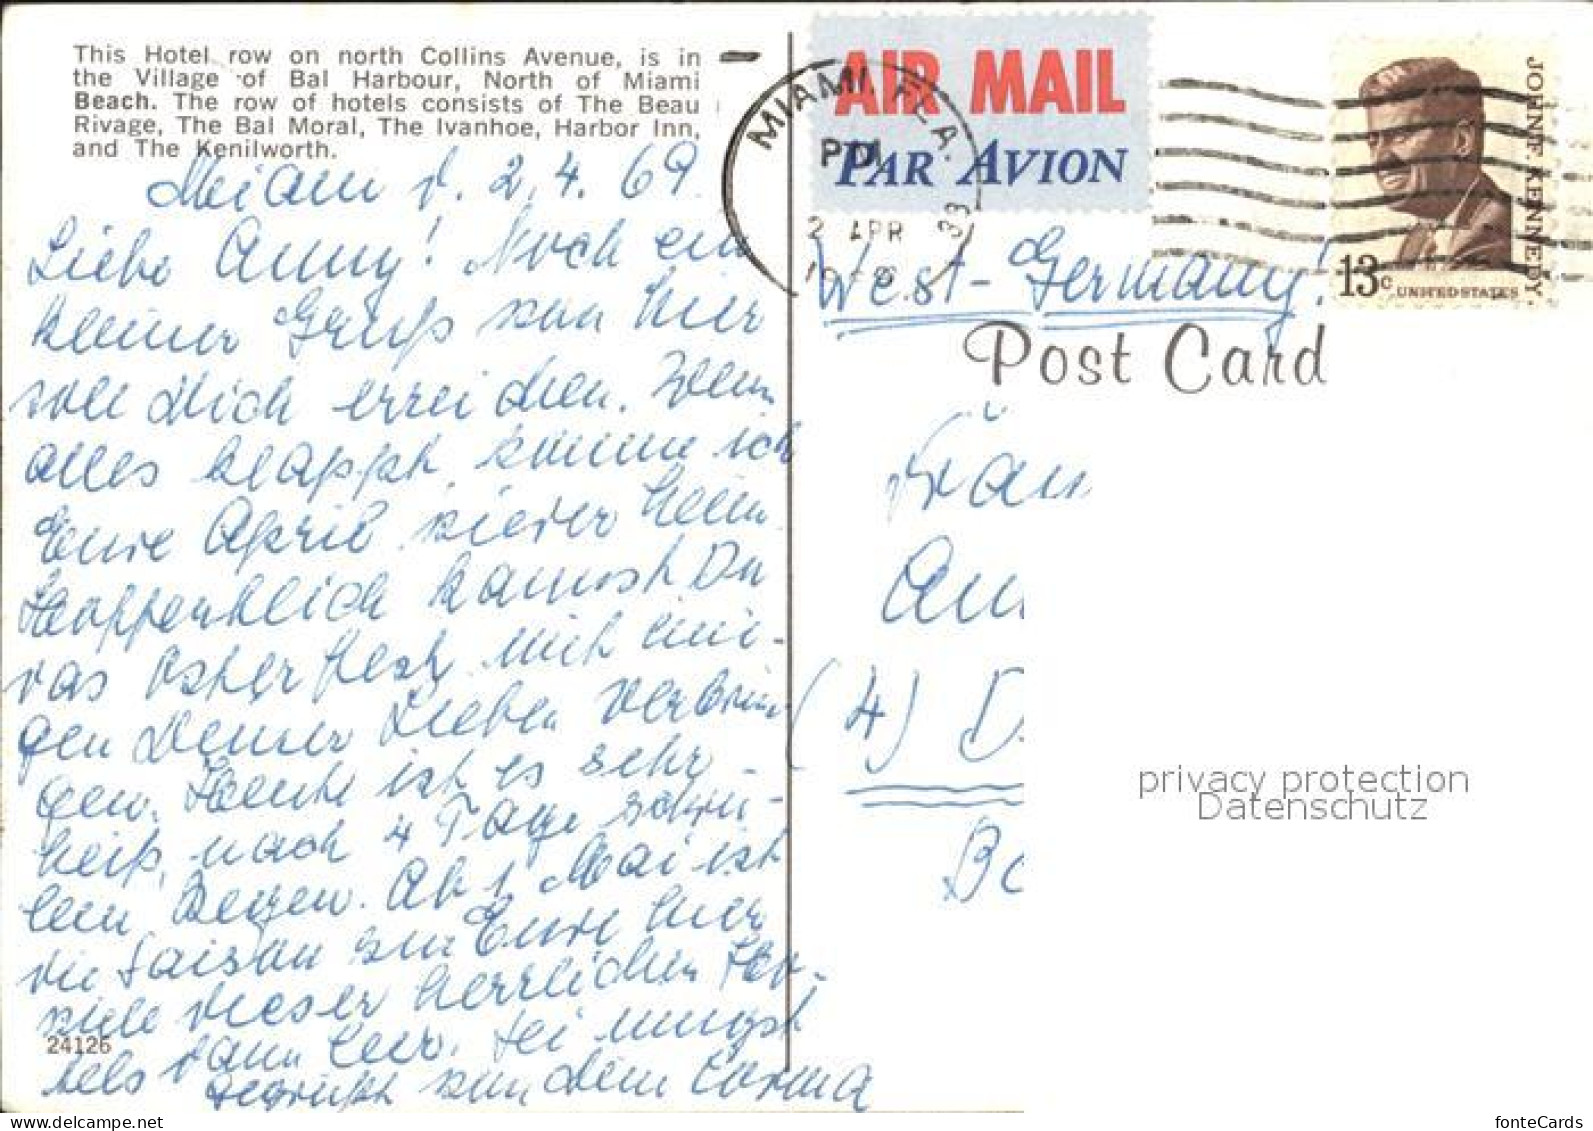 This Hotel row on north Collins Avenue, is in
the Village of Bal Harbour, North of Miami
Beach. The row of hotels consists of The Beau
Rivage, The Bal Moral, The Ivanhoe, Harbor Inn,
and The Kenilworth.
Meiami d. 2.4.69.
Liebe Anny! Noch ein
kleiner Gruß von hier
soll Dich erreichen. Wenn
alles klappt, komme ich
Ende April wieder heim.
Hoffentlich kannst Du
das Osterfest mit eini-
gen Deiner Lieben verbrin-
gen. Heute ist es sehr
heiß, nach 4 Tage schwü-
len Regen. Ab 1. Mai ist
die Saison zu Ende hier
viele dieser herrlichen Ho-
tels dann leer. Sei innigst
gegrüßt von dem Corma
24126
AIR MAIL
PAR AVION
MIAMI, FLA.
PM
2 APR
33
JOHN F. KENNEDY.
13c UNITED STATES
West-Germany!
Post Card
Frau
(4) D
privacy protection
Datenschutz
fonteCards